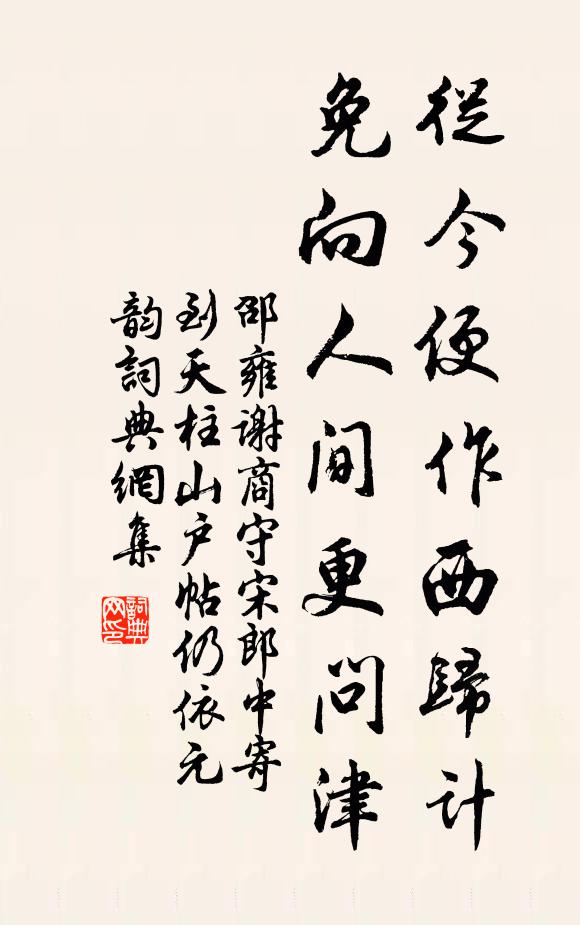 從今便作西歸計
免向人間更問津
邵雍謝商守宋郎中寄
到天柱山户帖仍依元
韵詞典網集
詞典网印